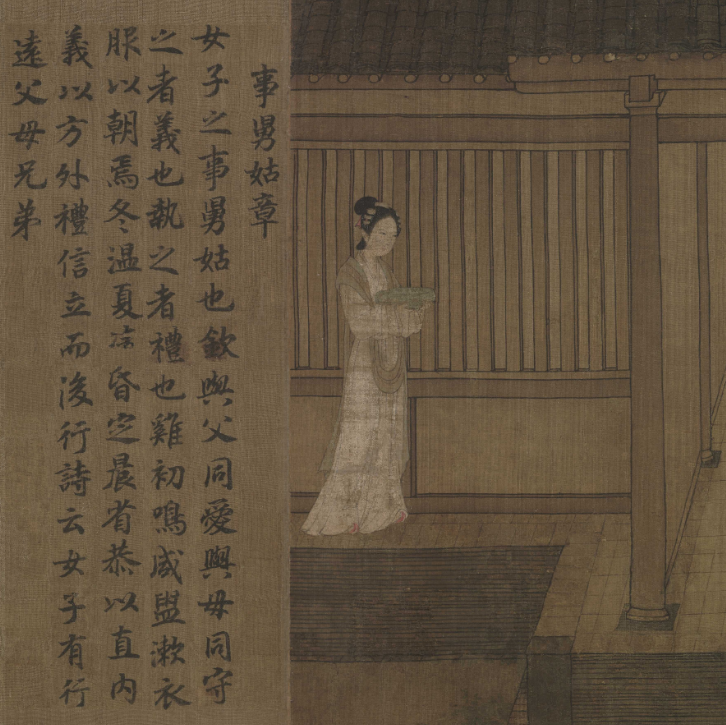 事舅姑章
女子之事舅姑也欽與父同愛與母同守
之者義也執之者禮也雞初鳴咸盥漱衣
服以朝焉冬温夏凊昏定晨省恭以直內
義以方外禮信立而後行詩云女子有行
遠父母兄弟